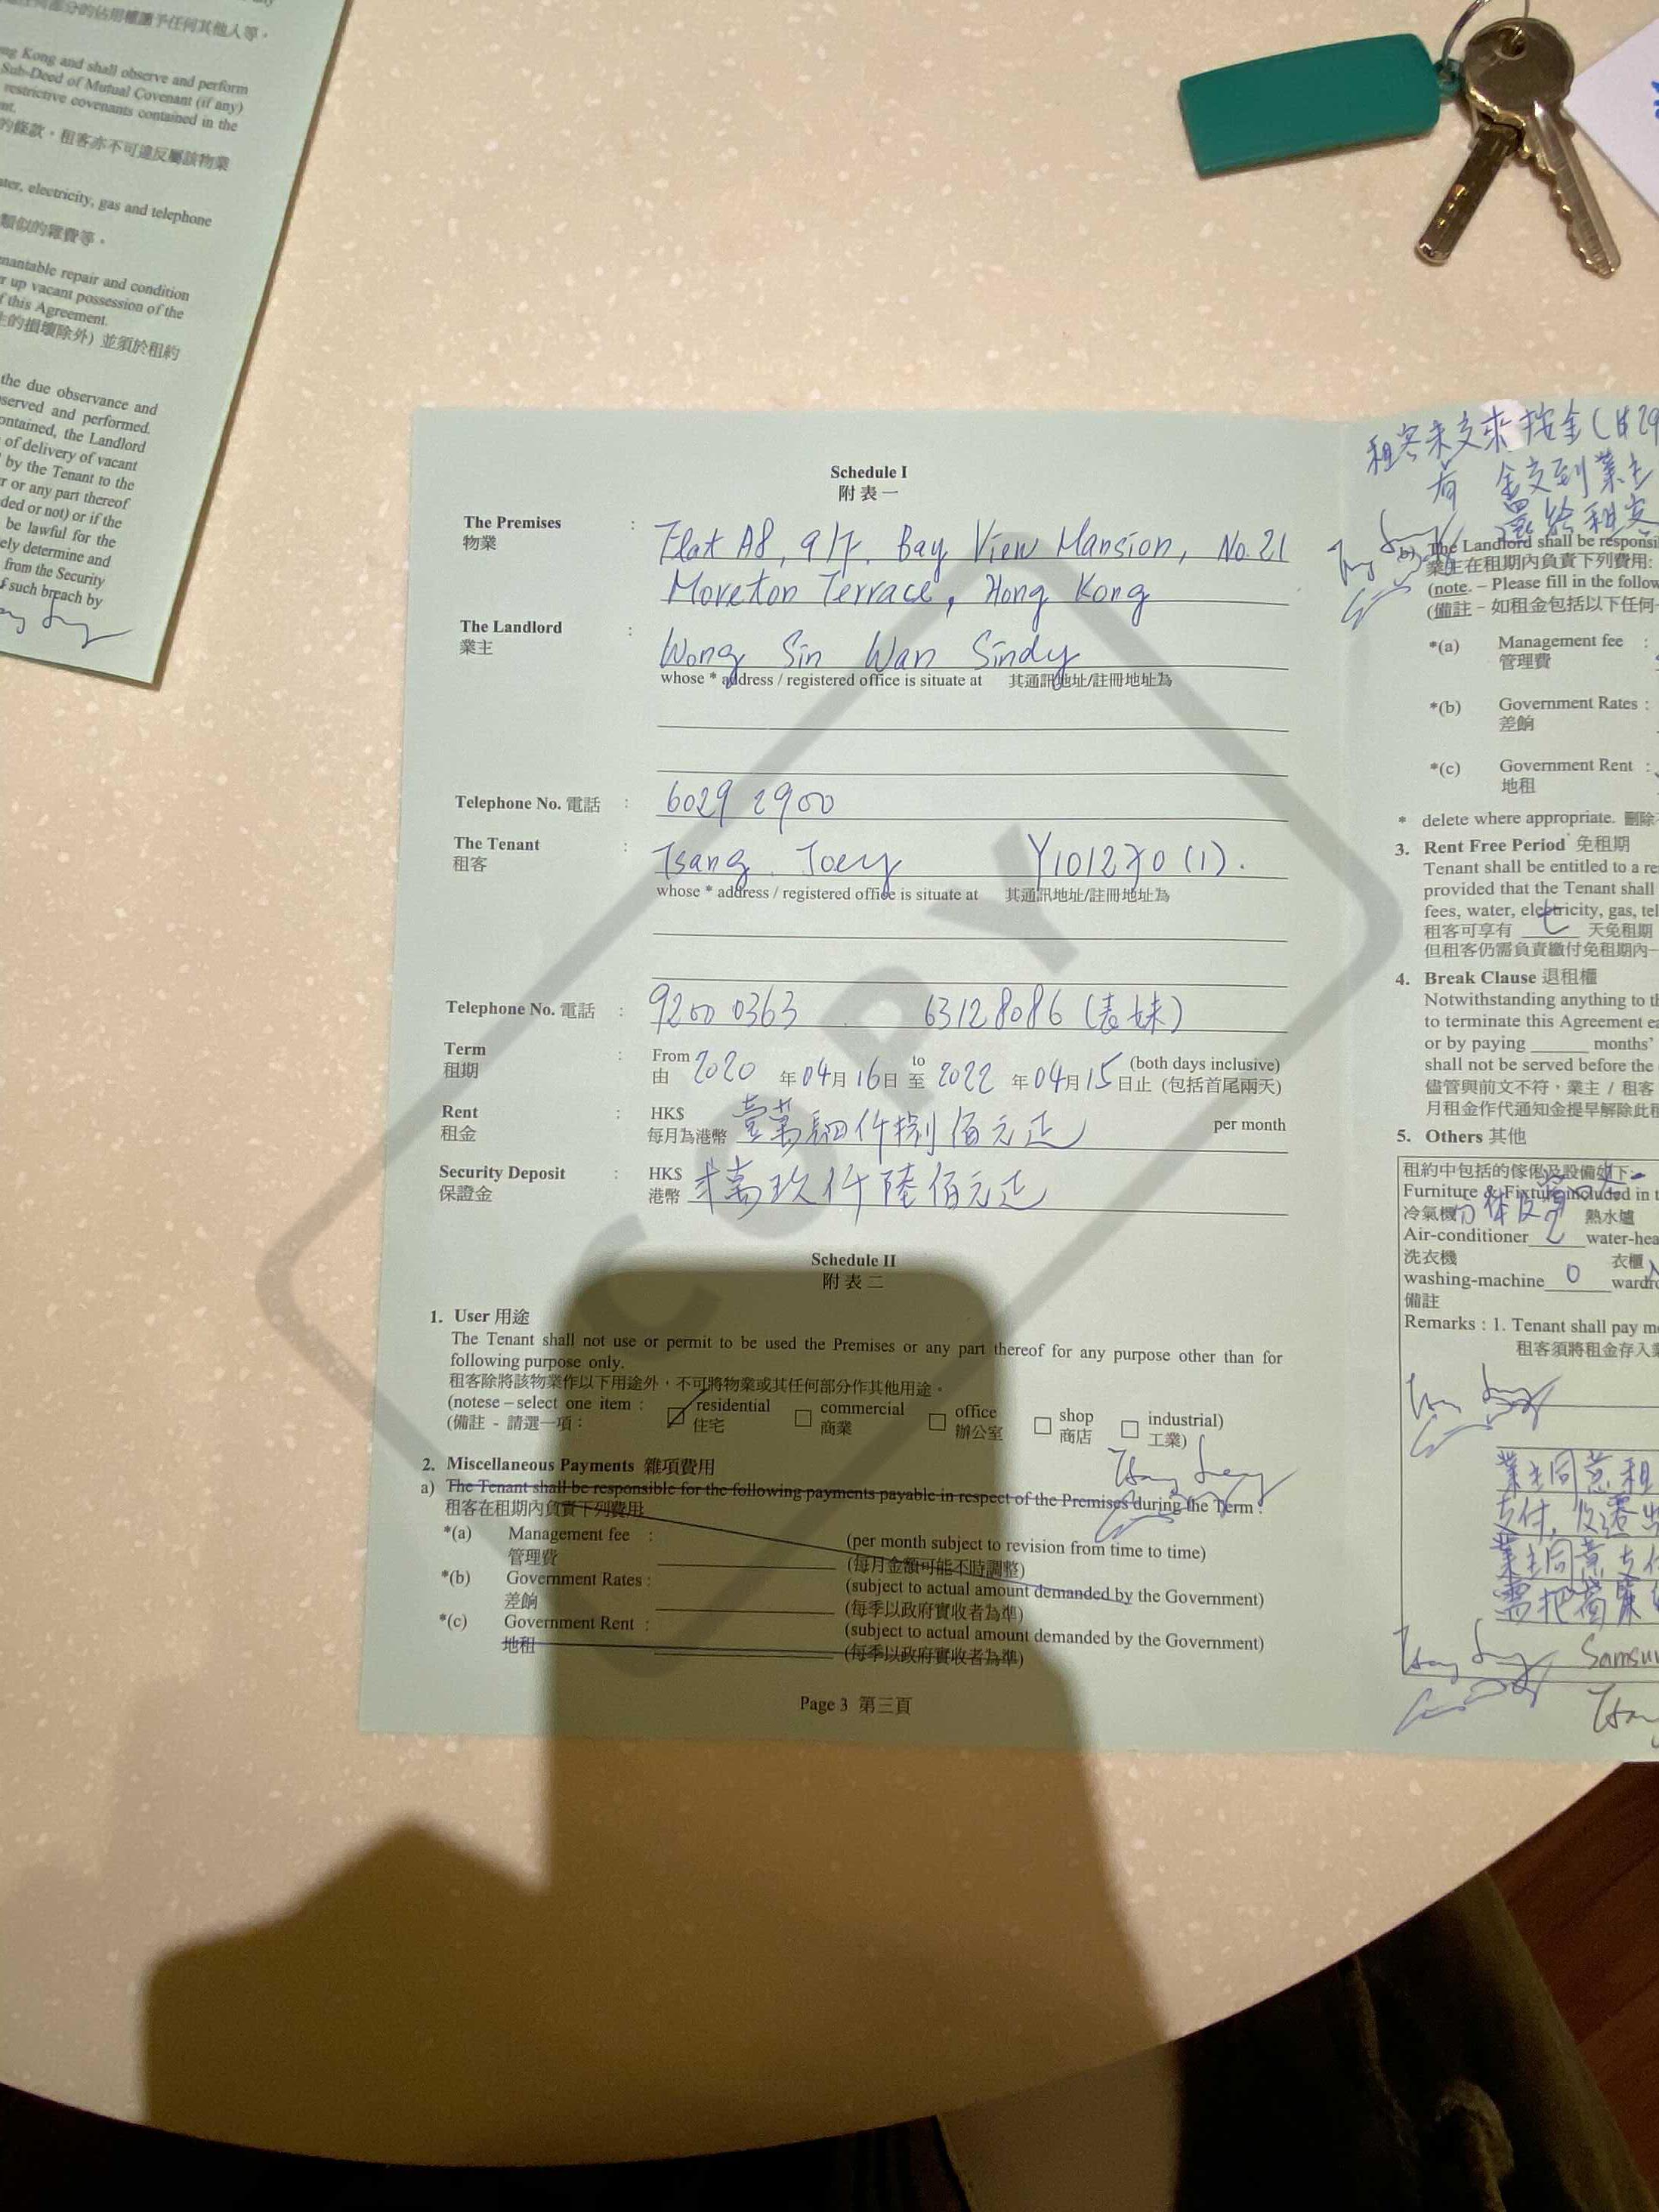 部分的佔用權讓予任何其他人等。
ng Kong and shall observe and perform
Sub-Deed of Mutual Covenant (if any)
restrictive covenants contained in the
的條款。租客亦不可違反屬該物業
ter, electricity, gas and telephone
類似的雜費等。
enantable repair and condition
r up vacant possession of the
f this Agreement.
生的損壞除外) 並須於租約
the due observance and
served and performed.
ontained, the Landlord
of delivery of vacant
by the Tenant to the
r or any part thereof
ded or not) or if the
be lawful for the
ely determine and
from the Security
f such breach by
Schedule I
附表一
The Premises : Flat A8, 9/F. Bay View Mansion, No. 21
物業
Moreton Terrace, Hong Kong
The Landlord : Wong Sin Wan Sindy
業主
whose * address / registered office is situate at 其通訊地址/註冊地址為
Telephone No. 電話 : 6029 2900
The Tenant : Tsang Joey Y101270(1).
租客
whose * address / registered office is situate at 其通訊地址/註冊地址為
Telephone No. 電話 : 9200 0363 63128086 (表妹)
Term : From 2020 to 2022 (both days inclusive)
租期 由 年04月16日 至 年04月15日止 (包括首尾兩天)
Rent : HK$ per month
租金 每月為港幣 壹萬肆仟捌佰元正
Security Deposit : HK$
保證金 港幣 弍萬玖仟陸佰元正
COPY
Schedule II
附表二
1. User 用途
The Tenant shall not use or permit to be used the Premises or any part thereof for any purpose other than for
following purpose only.
租客除將該物業作以下用途外，不可將物業或其任何部分作其他用途。
(notese – select one item : residential commercial office shop industrial)
(備註 - 請選一項： 住宅 商業 辦公室 商店 工業)
2. Miscellaneous Payments 雜項費用
a) The Tenant shall be responsible for the following payments payable in respect of the Premises during the Term :
租客在租期內負責下列費用
*(a) Management fee : (per month subject to revision from time to time)
管理費 (每月金額可能不時調整)
*(b) Government Rates : (subject to actual amount demanded by the Government)
差餉 (每季以政府實收者為準)
*(c) Government Rent : (subject to actual amount demanded by the Government)
地租 (每季以政府實收者為準)
Page 3 第三頁
租客未交來按金(
有 金交到業主
還給租客
The Landlord shall be responsi
業主在租期內負責下列費用:
(note. – Please fill in the follow
(備註 - 如租金包括以下任何
*(a) Management fee :
管理費
*(b) Government Rates :
差餉
*(c) Government Rent :
地租
* delete where appropriate. 刪除
3. Rent Free Period 免租期
Tenant shall be entitled to a re
provided that the Tenant shall
fees, water, electricity, gas, tel
租客可享有 七 天免租期
但租客仍需負責繳付免租期內
4. Break Clause 退租權
Notwithstanding anything to th
to terminate this Agreement ea
or by paying ______ months'
shall not be served before the
儘管與前文不符，業主 / 租客
月租金作代通知金提早解除此租
5. Others 其他
租約中包括的傢俬及設備如下:
Furniture & Fixture included in t
冷氣機 熱水爐
Air-conditioner 2 water-hea
洗衣機 衣櫃
washing-machine 0 wardro
備註
Remarks : 1. Tenant shall pay m
租客須將租金存入業
業主同意租
支付,
業主同意支付
需把
Samsu